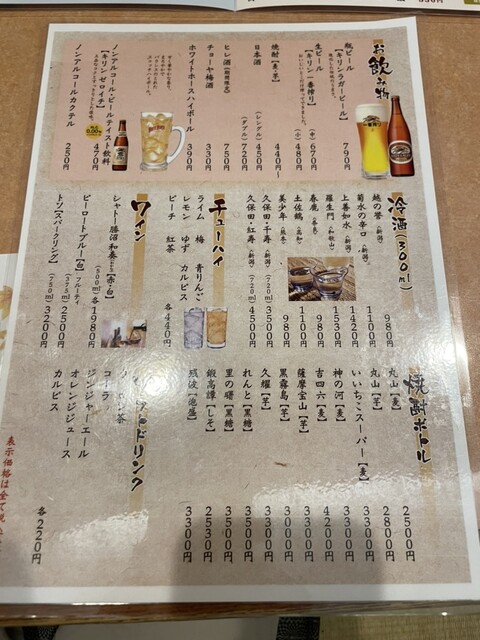 お飲み物
瓶ビール
【キリンラガービール】 790円
生ビール
【キリン一番搾り】
(中) 670円
(小) 480円
焼酎【麦・芋】 440円
日本酒
(シングル) 450円
(ダブル) 720円
ヒレ酒(期間限定) 750円
チョーヤ梅酒 330円
ホワイトホースハイボール 390円
ノンアルコール・ビールテイスト飲料
【キリンゼロイチ】 470円
ノンアルコールカクテル 250円
冷酒(300ml)
越の誉(新潟) 980円
菊水の辛口(新潟) 1110円
上善如水(新潟) 1420円
羅生門(和歌山) 1530円
春鹿(奈良) 980円
土佐鶴(高知) 1100円
美少年(熊本) 980円
久保田・千寿(新潟)(720ml) 3500円
久保田・紅寿(新潟)(720ml) 4500円
チューハイ
ライム 梅 青りんご
レモン ゆず カルピス
ピーチ 紅茶
各440円
ワイン
シャトー勝沼和奏【赤・白】
(300ml) 各1980円
ピーロートブルー【白】フルーティ
(375ml) 2500円
トソ【スパークリング】
(750ml) 3200円
焼酎ボトル
丸山【麦】 2500円
丸山【芋】 2800円
いいちこスーパー【麦】 3300円
神の河【麦】 3300円
吉四六【麦】 4200円
薩摩宝山【芋】 3000円
黒霧島【芋】 3000円
久耀【芋】 3300円
れんと【黒糖】 3300円
里の曙【黒糖】 3500円
鍛高譚【しそ】 2530円
残波【泡盛】 3300円
ドリンク
茶
コーラ
ジンジャーエール
オレンジジュース
カルピス
各220円
表示価格は全て税込